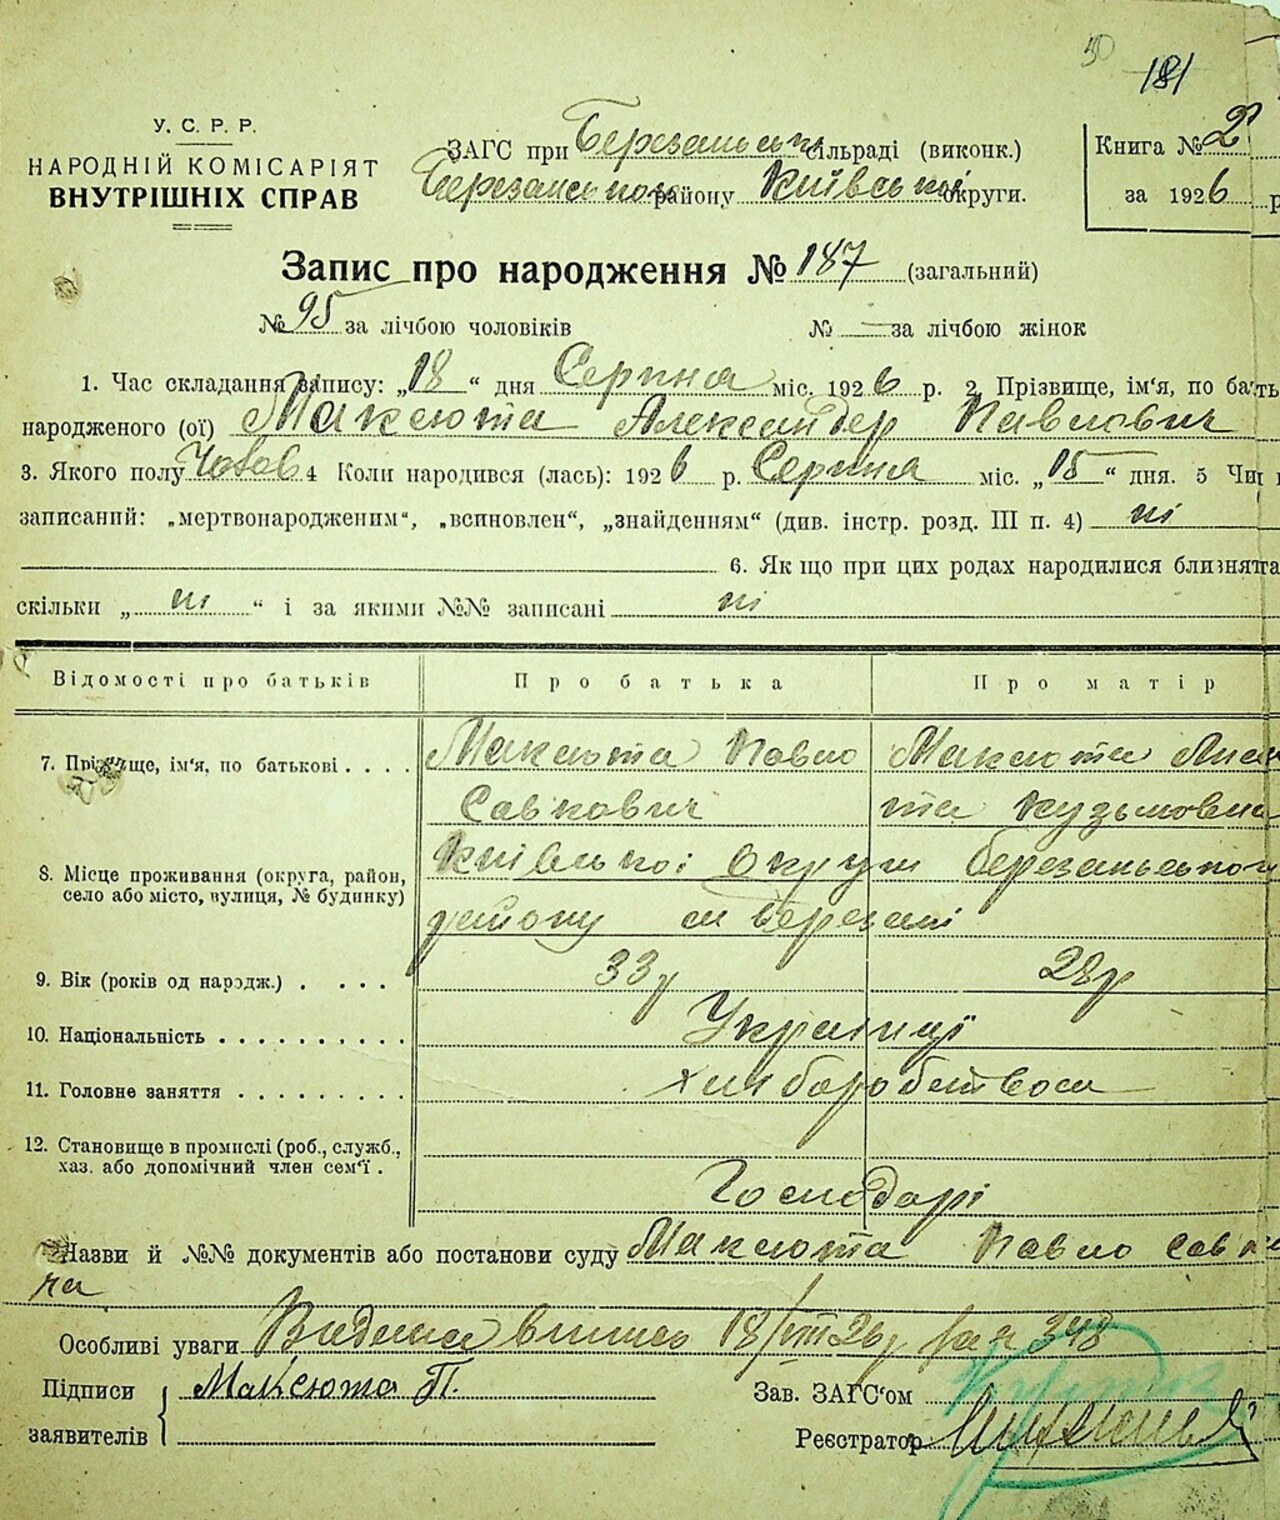 50 181
У. С. Р. Р.
НАРОДНІЙ КОМІСАРІЯТ
ВНУТРІШНІХ СПРАВ
ЗАГС при Березанськ сільраді (виконк.)
Березанськом району Київської округи.
Книга № 2
за 1926 р
Запис про народження № 187 (загальний)
№ 95 за лічбою чоловіків № — за лічбою жінок
1. Час складання запису: „18“ дня Серпня міс. 1926 р. 2. Прізвище, ім'я, по бать
народженого (ої) Максюта Александер Павлович
3. Якого полу Чолов 4 Коли народився (лась): 1926 р. Серпня міс. „15“ дня. 5 Чи
записаний: „мертвонародженим“, „всиновлен“, „знайденням“ (див. інстр. розд. III п. 4) ні
6. Якщо при цих родах народилися близнята
скільки „ ні “ і за якими №№ записані ні
Відомості про батьків Про батька Про матір
7. Прізвище, ім'я, по батькові . . . . Максюта Павло Максюта Ани
Савкович та Кузьмовна
8. Місце проживання (округа, район, село або місто, вулиця, № будинку) Київської округи Березанського
району м Березані
9. Вік (років од народж.) . . . . 33р 28р
10. Національність . . . . . . . . . . Українці
11. Головне заняття . . . . . . . . . хліборобством
12. Становище в промислі (роб., служб.,
хаз. або допомічний член сем'ї . Господарі
Назви й №№ документів або постанови суду Максюта Павло Савко
ча
Особливі уваги Видана випись 18/VIII 26р за № 348
Підписи заявителів Максюта П.
Зав. ЗАГС'ом
Реєстратор